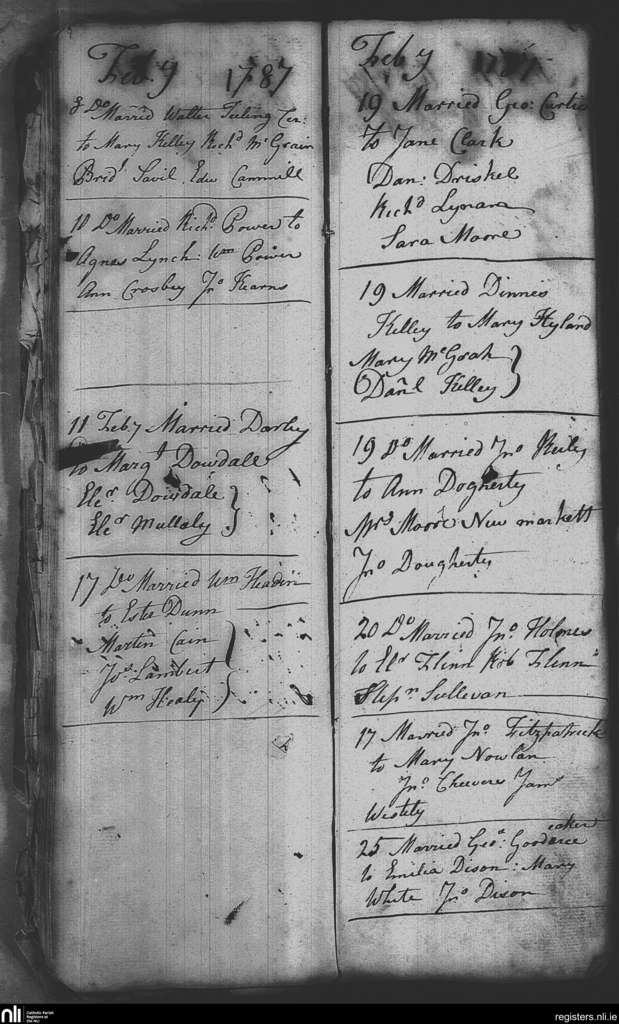 Feb.y 1787
8 Do Married Walter Tuling Cer:
to Mary Kelley Richd McGrain
Bridt Savil Edw Cammell
10 Do Married Richd Power to
Agnes Lynch: Wm Power
Ann Crosbey Jno Kearns
11 Feb.y Married Darley
to Margt Dowdale
Eler Dowdale
Eler Mullaly
17 Do Married Wm Headin
to Este Dunn
Martin Cain
Jos Lambert
Wm Healy
Feb y 1787
19 Married Geo: Curtis
to Jane Clark
Dan: Driskel
Richd Lynara
Sara Moore
19 Married Dinnes
Kelley to Mary Hyland
Mary McGrah
Danl Kelley
19 Do Married Jno Reiley
to Ann Dogherty
Mrs Moore New markett
Jno Dougherty
20 Do Married Jno Holmes
to Elr Flinn Flinn
Stepn Sullevan
17 Married Jno Fitzpatrick
to Mary Nowlan
Jno Cheevers Jams
Westely
25 Married Geo Goodacre
eaker
to Emilia Dison: Mary
White Jno Dison
nli Catholic Parish Registers at the NLI
registers.nli.ie